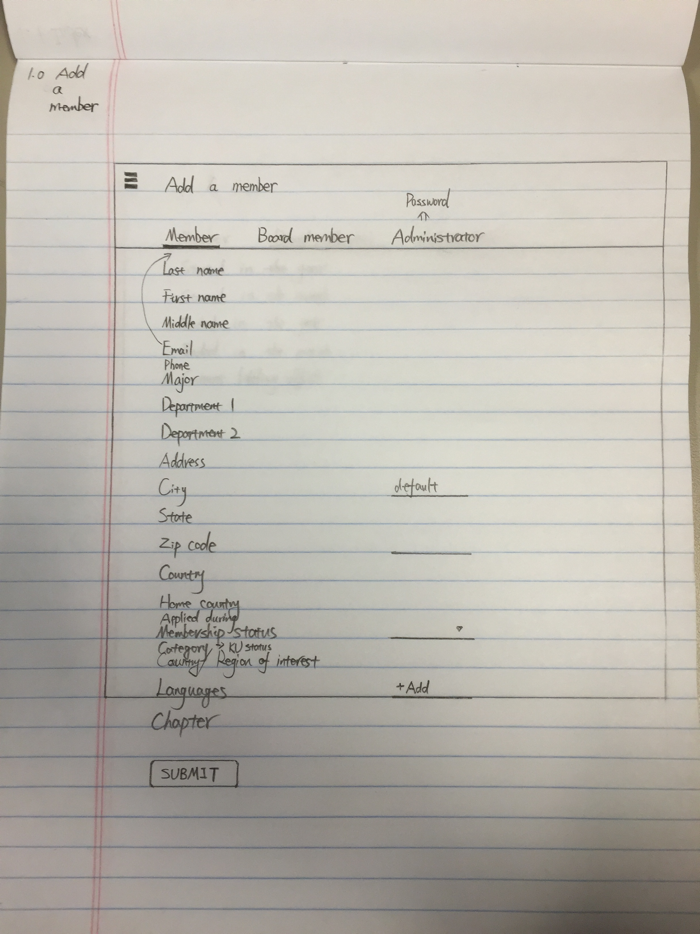 1.0 Add
a
member
Add a member
Password
Member Board member Administrator
Last name
First name
Middle name
Email
Phone
Major
Department 1
Department 2
Address
City default
State
Zip code
Country
Home country
Applied during
Membership status
Category → KU status
Country/ Region of interest
Languages +Add
Chapter
SUBMIT